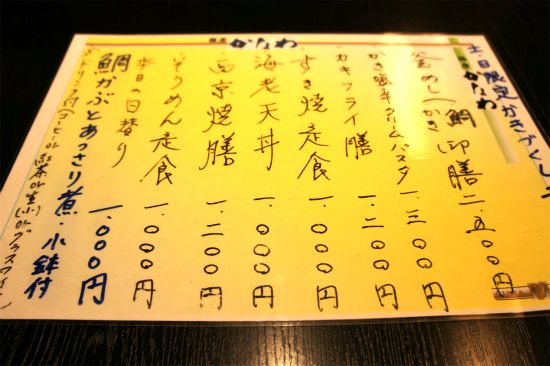 土・日限定かきづくし
かなわ
釜めし(かき) 鯛 御膳 二、五〇〇円
かき 辛クリームパスタ 一、三〇〇円
カキフライ膳 一、二〇〇円
すき焼定食 一、〇〇〇円
かなわ
海老天丼 一、〇〇〇円
西京焼膳 一、二〇〇円
そうめん定食 一、〇〇〇円
本日の日替り
鯛かぶとあっさり煮・小鉢付 一、〇〇〇円
ドリンク付(コーヒーor紅茶or